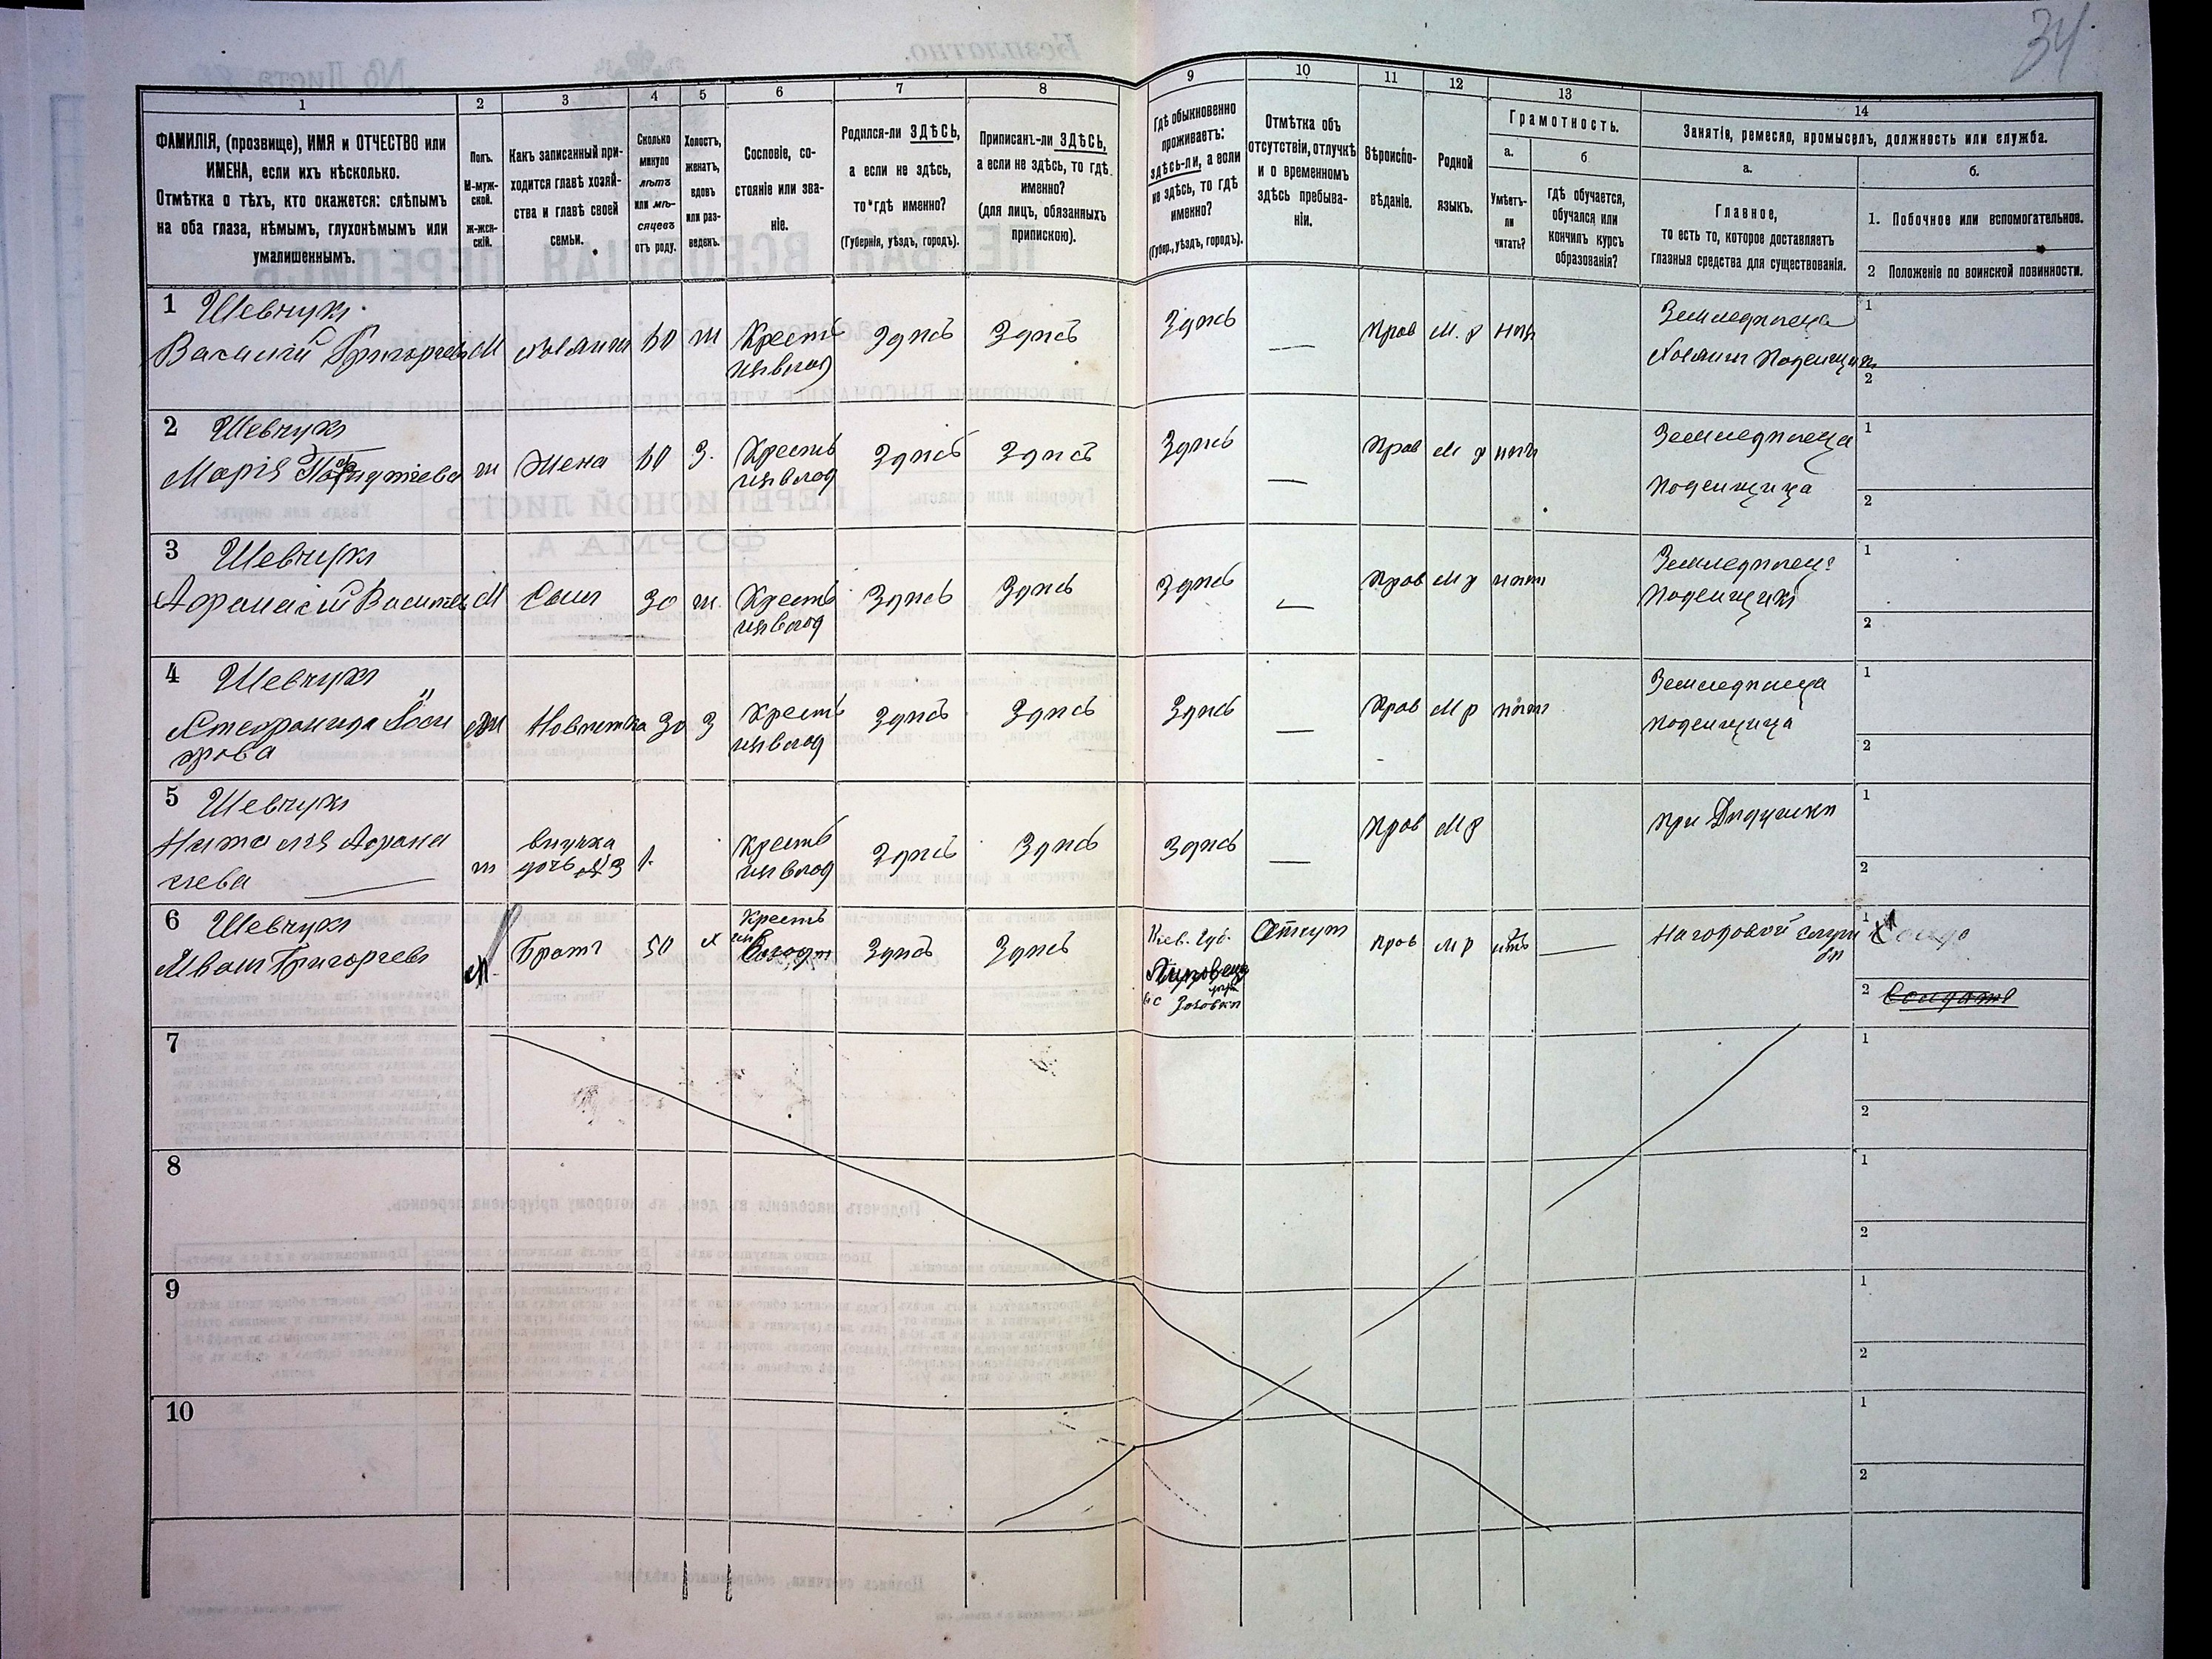 34
1
2
3
4
5
6
7
8
9
10
11
12
13
14
ФАМИЛІЯ, (прозвище), ИМЯ и ОТЧЕСТВО или
ИМЕНА, если ихъ нѣсколько.
Отмѣтка о тѣхъ, кто окажется: слѣпымъ
на оба глаза, нѣмымъ, глухонѣмымъ или
умалишеннымъ.
Полъ.
М-муж-
ской.
Ж-жен-
скій.
Какъ записанный при-
ходится главѣ хозяй-
ства и главѣ своей
семьи.
Сколько
минуло
лѣтъ
или мѣ-
сяцевъ
отъ роду.
Холостъ,
женатъ,
вдовъ
или раз-
веденъ.
Сословіе, со-
стояніе или зва-
ніе.
Родился-ли ЗДѢСЬ,
а если не здѣсь,
то гдѣ именно?
(Губернія, уѣздъ, городъ).
Приписанъ-ли ЗДѢСЬ,
а если не здѣсь, то гдѣ
именно?
(для лицъ, обязанныхъ
припискою).
Гдѣ обыкновенно
проживаетъ:
здѣсь-ли, а если
не здѣсь, то гдѣ
именно?
(Губер., уѣздъ, городъ).
Отмѣтка объ
отсутствіи, отлучкѣ
и о временномъ
здѣсь пребыва-
ніи.
Вѣроиспо-
вѣданіе.
Родной
языкъ.
Грамотность.
а.
б
Умѣетъ-
ли
читать?
гдѣ обучается,
обучался или
кончилъ курсъ
образованія?
Занятіе, ремесло, промыселъ, должность или служба.
а.
б.
Главное,
то есть то, которое доставляетъ
главныя средства для существованія.
1. Побочное или вспомогательное.
2 Положеніе по воинской повинности.
1 Шевчукъ
Василій Григорьевъ М хозяинъ 60 ж Крестъ Здѣсь Здѣсь Здѣсь — Прав М. р нѣтъ
Земледѣлецъ
Хозяинъ Поденщикъ
1
2
2 Шевчукъ
Марія ж Жена 60 З. Крестъ Здѣсь Здѣсь Здѣсь — Прав М р нѣтъ
Земледѣлецъ
Поденщица
1
2
3 Шевчукъ
Афанасій Васильев М Сынъ 30 ж. Крестъ Здѣсь Здѣсь Здѣсь — Прав М р нѣтъ
Земледѣлецъ
Поденщикъ
1
2
4 Шевчукъ
Стефанида ж Новѣстка 30 З Крестъ Здѣсь Здѣсь Здѣсь — Прав М р нѣтъ
Земледѣлица
Поденщица
1
2
5 Шевчукъ
Наталія Афана
сіева ж внучка
дочь 3 1. Крестъ Здѣсь Здѣсь Здѣсь — Прав М р
При Дѣдушкѣ
1
2
6 Шевчукъ
Иванъ Григорьевъ М Братъ 50 Крестъ Здѣсь Здѣсь
Кіев. Губ.
Отсут Прав М р —
1
2 Солдатъ
7
1
2
8
1
2
9
1
2
10
1
2